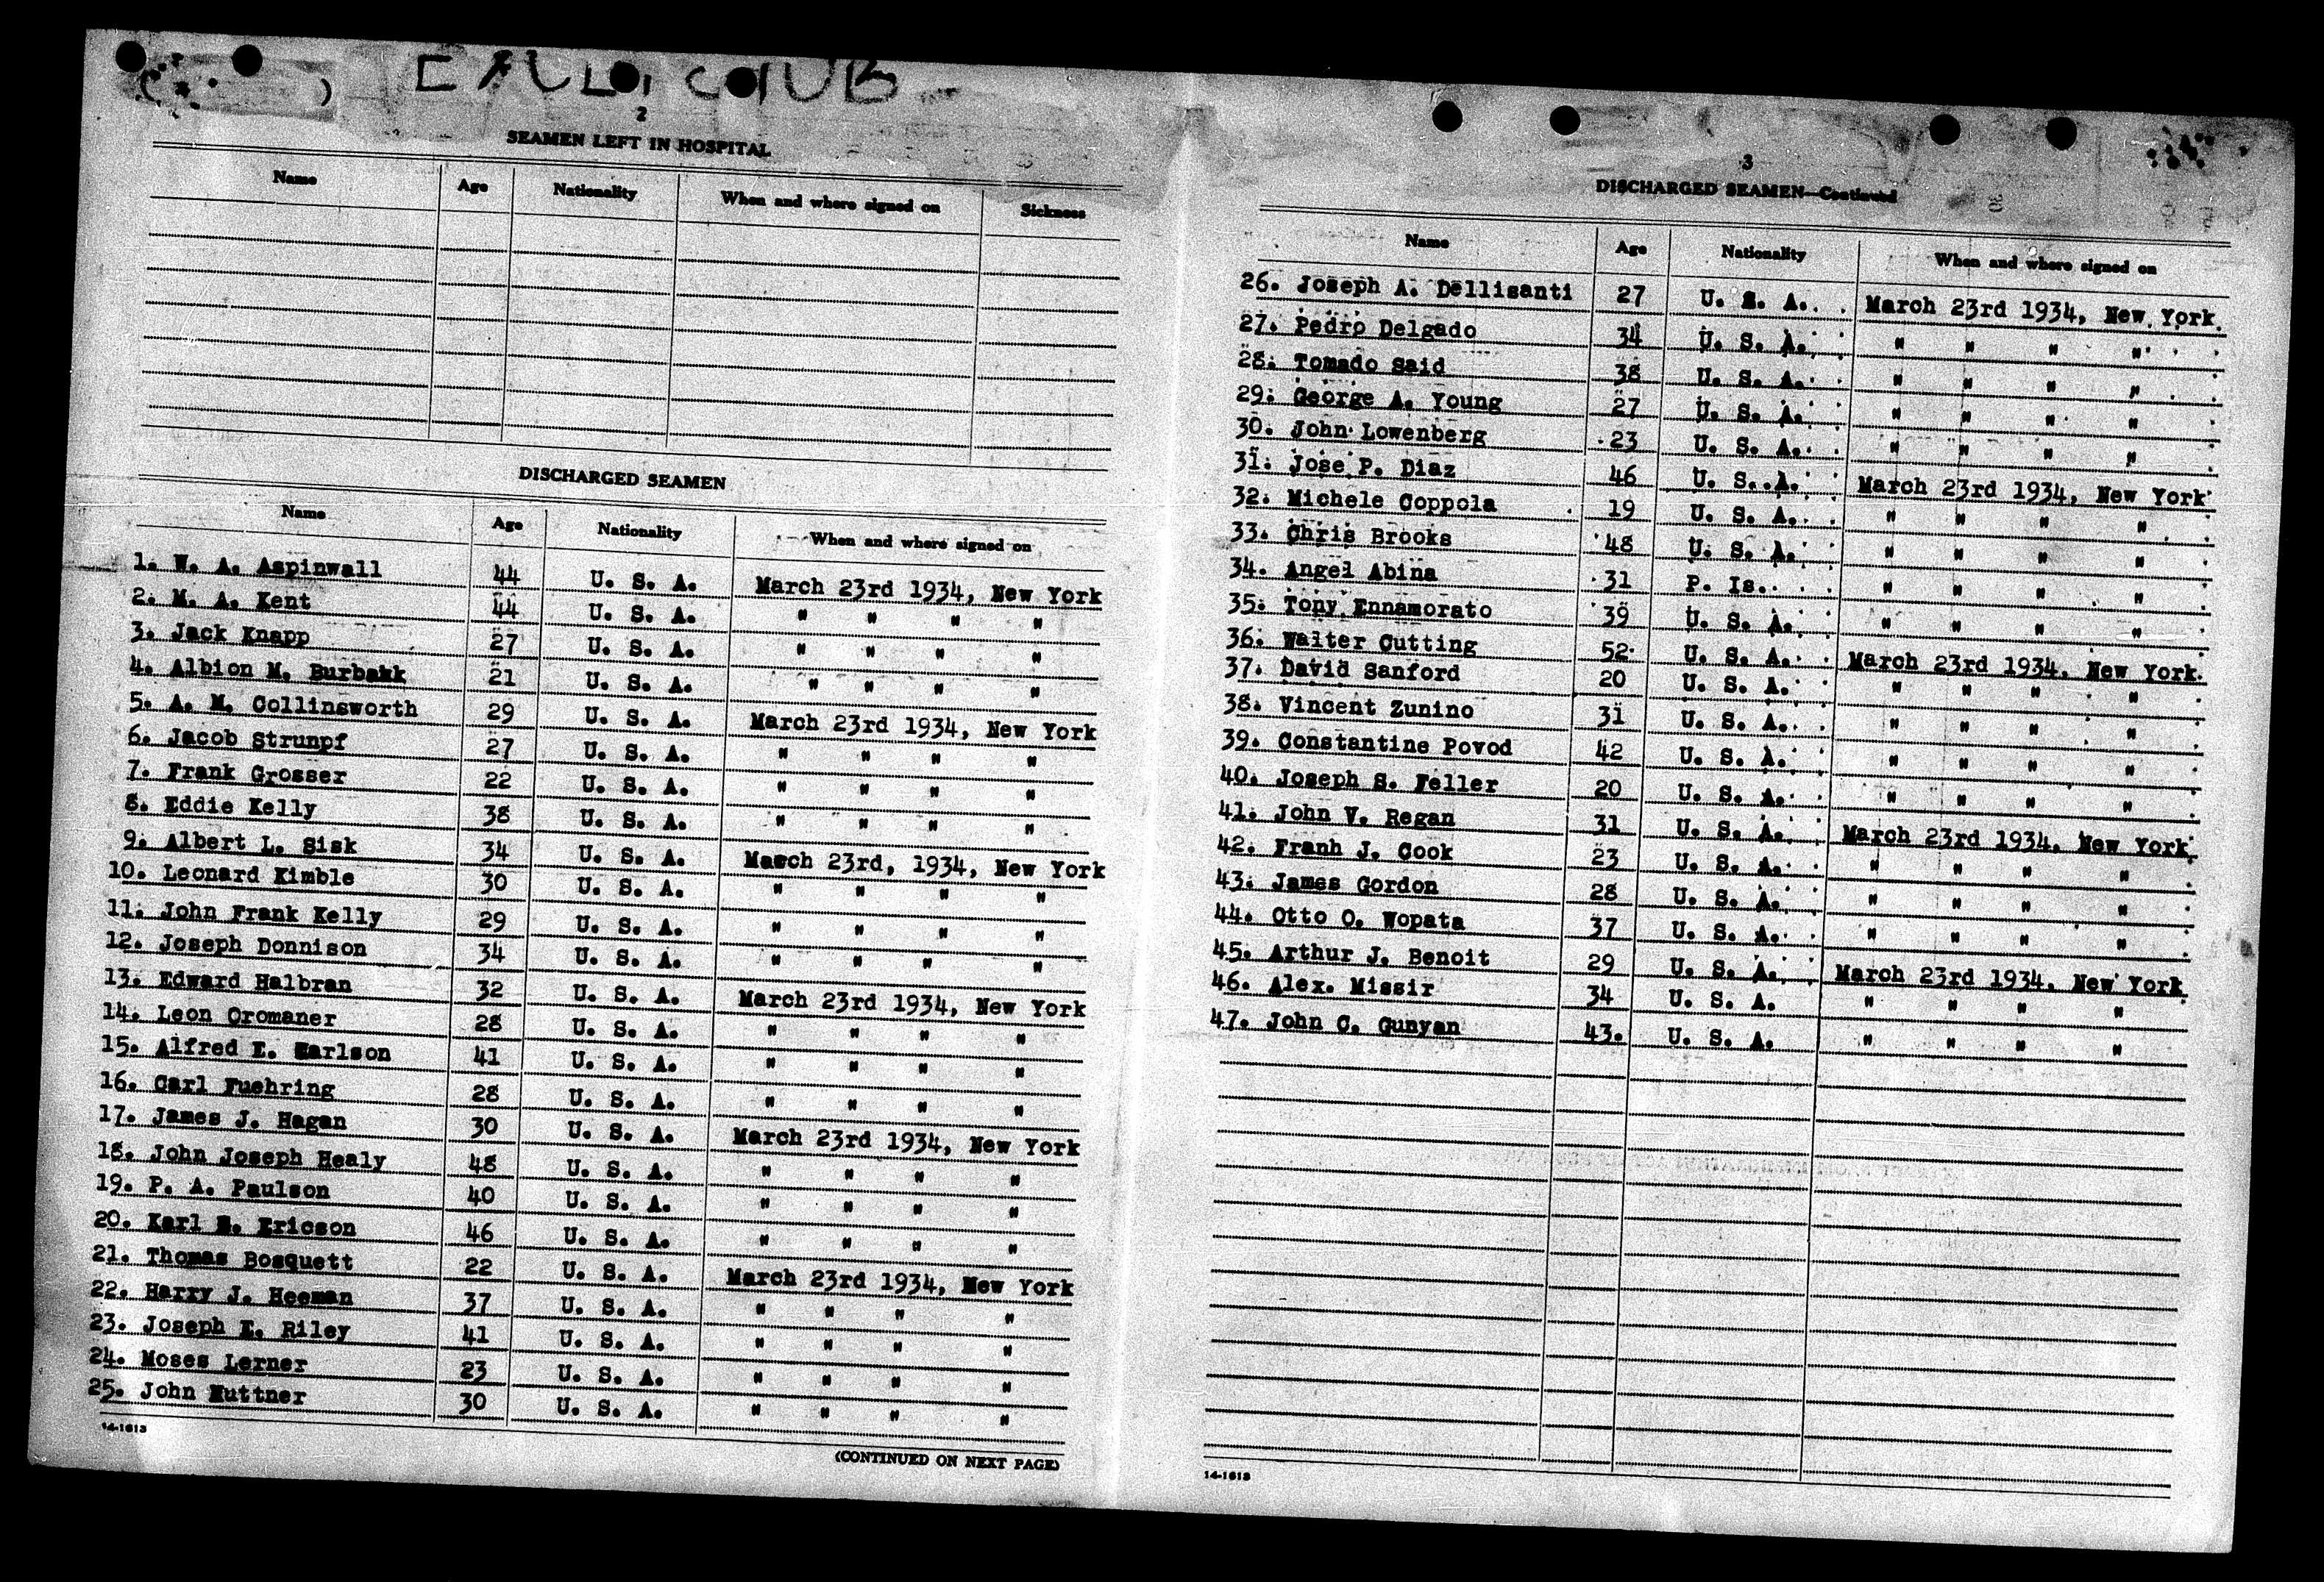 2
SEAMEN LEFT IN HOSPITAL
Name Age Nationality When and where signed on Sickness
DISCHARGED SEAMEN
Name Age Nationality When and where signed on
1. W. A. Aspinwall 44 U. S. A. March 23rd 1934, New York
2. M. A. Kent 44 U. S. A. " " " "
3. Jack Knapp 27 U. S. A. " " " "
4. Albion M. Burbank 21 U. S. A. " " " "
5. A. M. Collinsworth 29 U. S. A. March 23rd 1934, New York
6. Jacob Strunpf 27 U. S. A. " " " "
7. Frank Grosser 22 U. S. A. " " " "
8. Eddie Kelly 38 U. S. A. " " " "
9. Albert L. Sisk 34 U. S. A. March 23rd, 1934, New York
10. Leonard Kimble 30 U. S. A. " " " "
11. John Frank Kelly 29 U. S. A. " " " "
12. Joseph Donnison 34 U. S. A. " " " "
13. Edward Halbran 32 U. S. A. March 23rd 1934, New York
14. Leon Cromaner 28 U. S. A. " " " "
15. Alfred E. Karlson 41 U. S. A. " " " "
16. Carl Fuehring 28 U. S. A. " " " "
17. James J. Hagan 30 U. S. A. March 23rd 1934, New York
18. John Joseph Healy 48 U. S. A. " " " "
19. P. A. Paulson 40 U. S. A. " " " "
20. Karl Ericson 46 U. S. A. " " " "
21. Thomas Bosquett 22 U. S. A. March 23rd 1934, New York
22. Harry J. Heeman 37 U. S. A. " " " "
23. Joseph E. Riley 41 U. S. A. " " " "
24. Moses Lerner 23 U. S. A. " " " "
25. John Huttner 30 U. S. A. " " " "
14-1613
(CONTINUED ON NEXT PAGE)
3
DISCHARGED SEAMEN—Continued
Name Age Nationality When and where signed on
26. Joseph A. Dellisanti 27 U. S. A. March 23rd 1934, New York.
27. Pedro Delgado 34 U. S. A. " " " "
28. Tomado Said 38 U. S. A. " " " "
29. George A. Young 27 U. S. A. " " " "
30. John Lowenberg 23 U. S. A. " " " "
31. Jose P. Diaz 46 U. S. A. March 23rd 1934, New York
32. Michele Coppola 19 U. S. A. " " " "
33. Chris Brooks 48 U. S. A. " " " "
34. Angel Abina 31 P. Is. " " " "
35. Tony Ennamorato 39 U. S. A. " " " "
36. Walter Cutting 52 U. S. A. March 23rd 1934. New York.
37. David Sanford 20 U. S. A. " " " "
38. Vincent Zunino 31 U. S. A. " " " "
39. Constantine Povod 42 U. S. A. " " " "
40. Joseph S. Feller 20 U. S. A. " " " "
41. John V. Regan 31 U. S. A. March 23rd 1934. New York.
42. Franh J. Cook 23 U. S. A. " " " "
43. James Gordon 28 U. S. A. " " " "
44. Otto O. Wopata 37 U. S. A. " " " "
45. Arthur J. Benoit 29 U. S. A. March 23rd 1934. New York
46. Alex. Missir 34 U. S. A. " " " "
47. John C. Gunyan 43. U. S. A. " " " "
14-1613